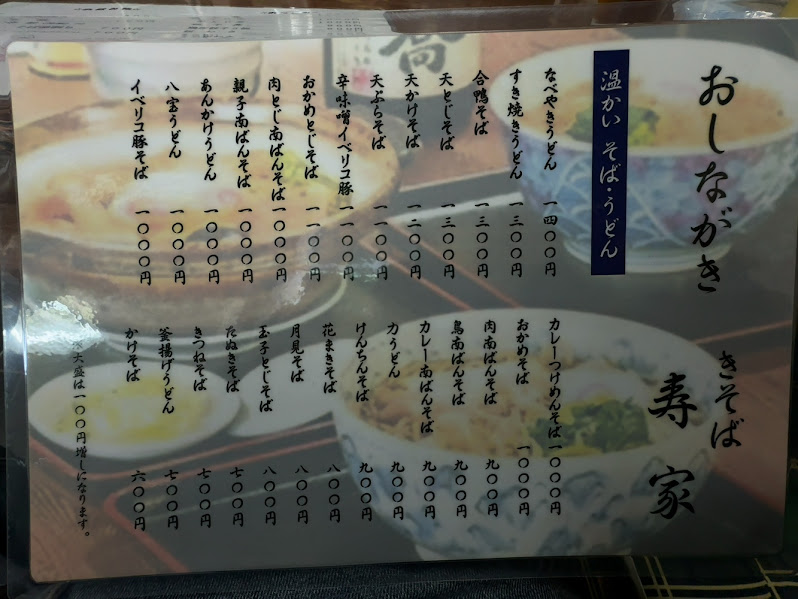 おしながき
きそば
寿家
温かい そば・うどん
なべやきうどん 一四〇〇円
すき焼きうどん 一三〇〇円
合鴨そば 一三〇〇円
天とじそば 一三〇〇円
天かけそば 一二〇〇円
天ぷらそば 一一〇〇円
辛味噌イベリコ豚 一一〇〇円
おかめとじそば 一一〇〇円
肉とじ南ばんそば 一〇〇〇円
親子南ばんそば 一〇〇〇円
あんかけうどん 一〇〇〇円
八宝うどん 一〇〇〇円
イベリコ豚そば 一〇〇〇円
カレーつけめんそば 一〇〇〇円
おかめそば 一〇〇〇円
肉南ばんそば 九〇〇円
鳥南ばんそば 九〇〇円
カレー南ばんそば 九〇〇円
力うどん 九〇〇円
けんちんそば 九〇〇円
花まきそば 八〇〇円
月見そば 八〇〇円
玉子とじそば 八〇〇円
たぬきそば 七〇〇円
きつねそば 七〇〇円
釜揚げうどん 七〇〇円
かけそば 六〇〇円
大盛は一〇〇円増しになります。